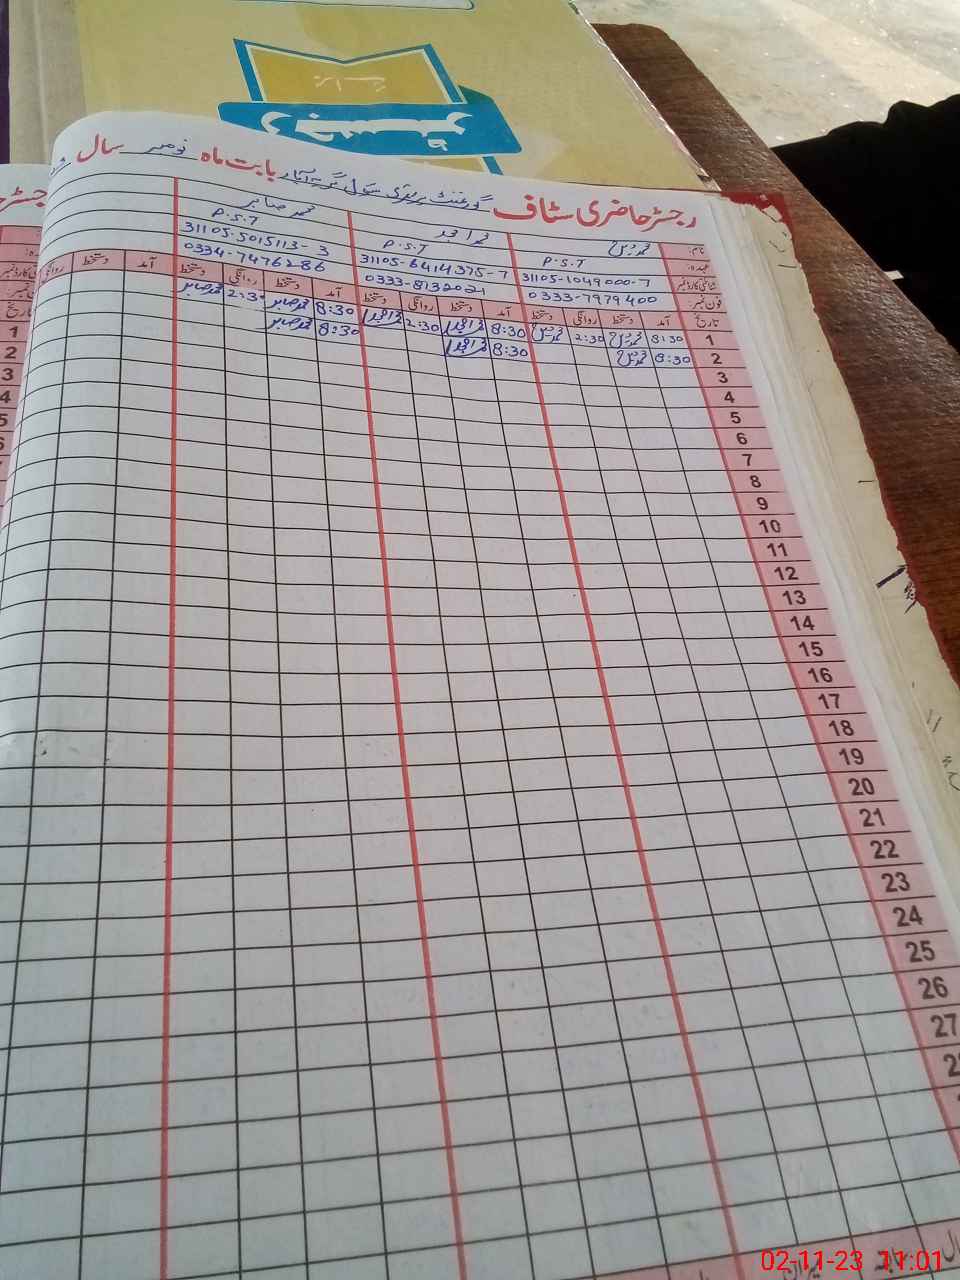 رجسٹر
رجسٹر حاضری سٹاف گورنمنٹ پرائمری سکول بابت ماہ نومبر سال
نام: محمد یونس محمد امجد محمد صابر
عہدہ: P.S.T P.S.T P.S.T
شناختی کارڈ نمبر 31105-1049000-7 31105-6414375-7 31105-5015113-3
فون نمبر: 0333-7979400 0333-8132021 0334-7476286
تاریخ آمد دستخط روانگی دستخط آمد دستخط روانگی دستخط آمد دستخط روانگی دستخط آمد دستخط روانگی
1 8:30 محمد یونس 2:30 محمد یونس 8:30 محمد امجد 2:30 محمد امجد 8:30 محمد صابر 2:30 محمد صابر
2 8:30 محمد یونس 8:30 محمد امجد 8:30 محمد صابر
3
4
5
6
7
8
9
10
11
12
13
14
15
16
17
18
19
20
21
22
23
24
25
26
27
02-11-23 11:01